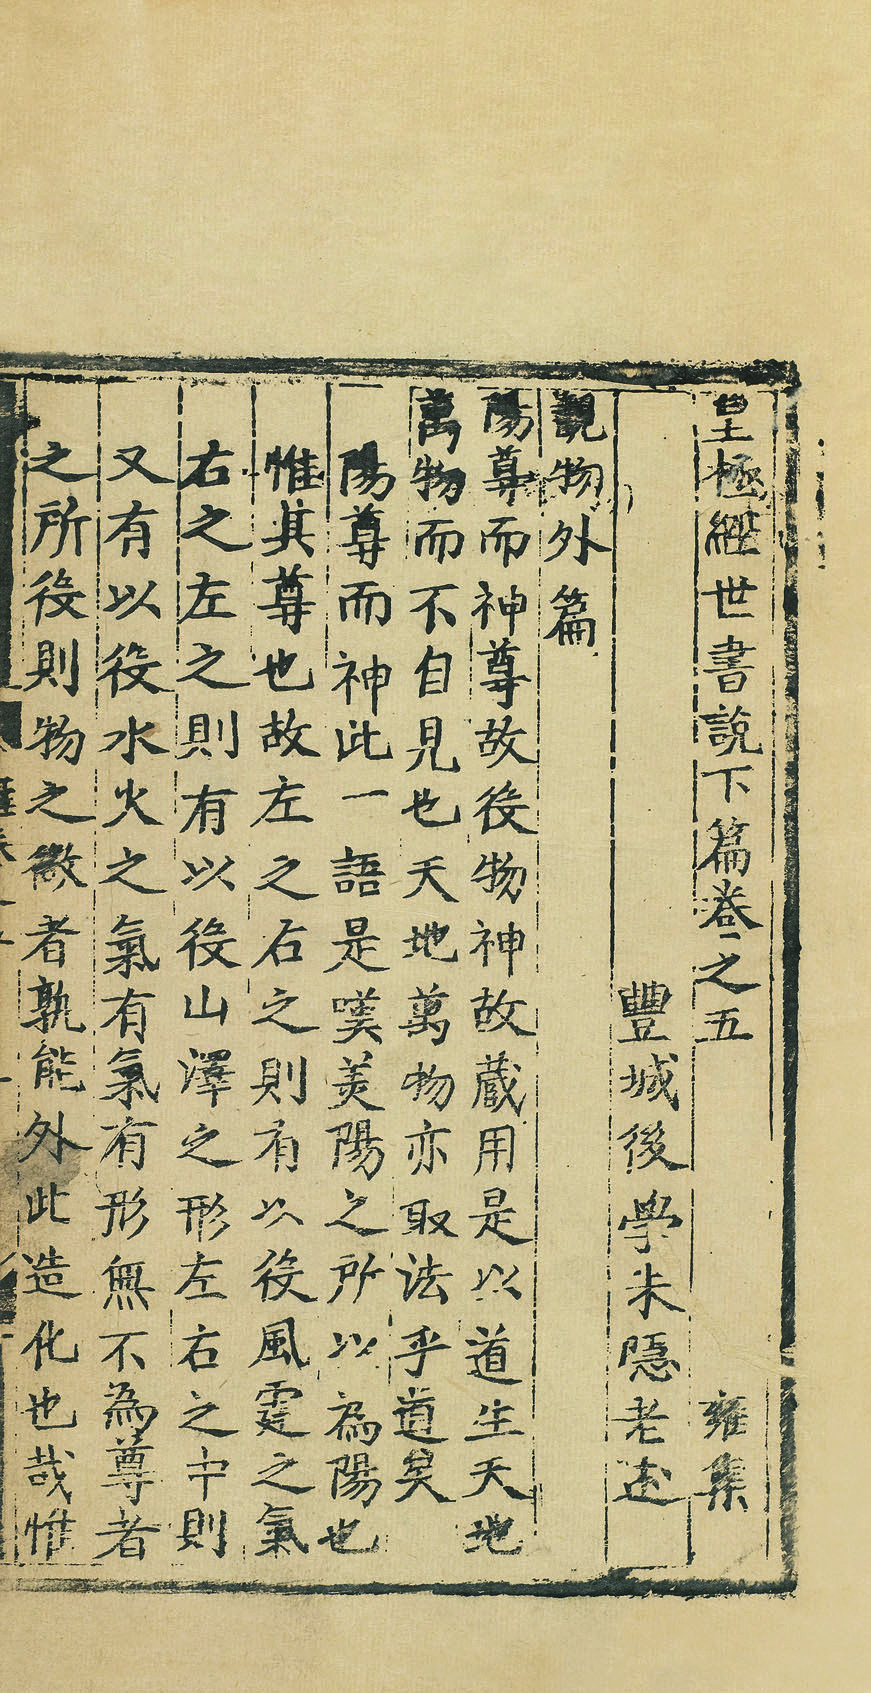 皇極經世書說下篇卷之五 雍集
豐城後學朱隱老述
觀物外篇
陽尊而神尊故役物神故藏用是以道生天地
萬物而不自見也天地萬物亦取法乎道矣
陽尊而神此一語是嘆美陽之所以為陽也
惟其尊也故左之右之則有以役風霆之氣
右之左之則有以役山澤之形左右之中則
又有以役水火之氣有氣有形無不為尊者
之所役則物之微者孰能外此造化也哉惟